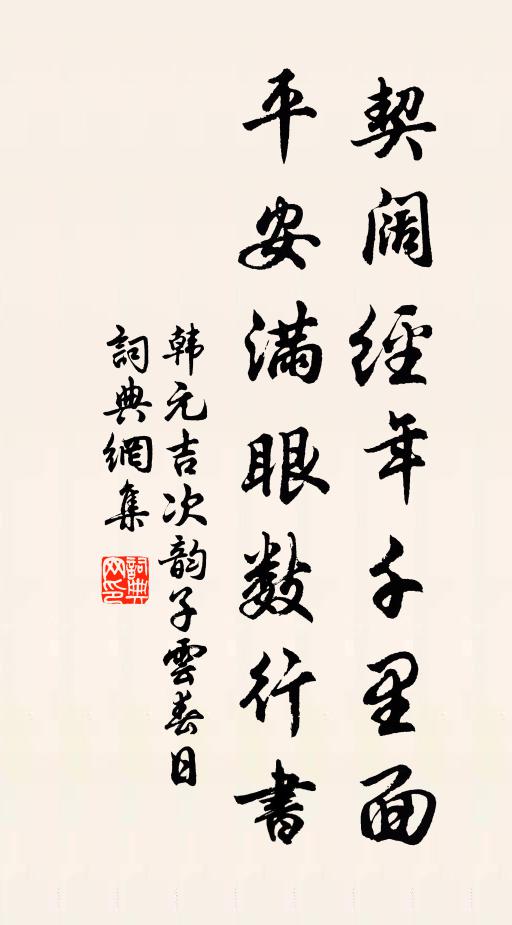 契阔經年千里面
平安滿眼數行書
韩元吉次韵子雲春日
詞典網集
詞典网印